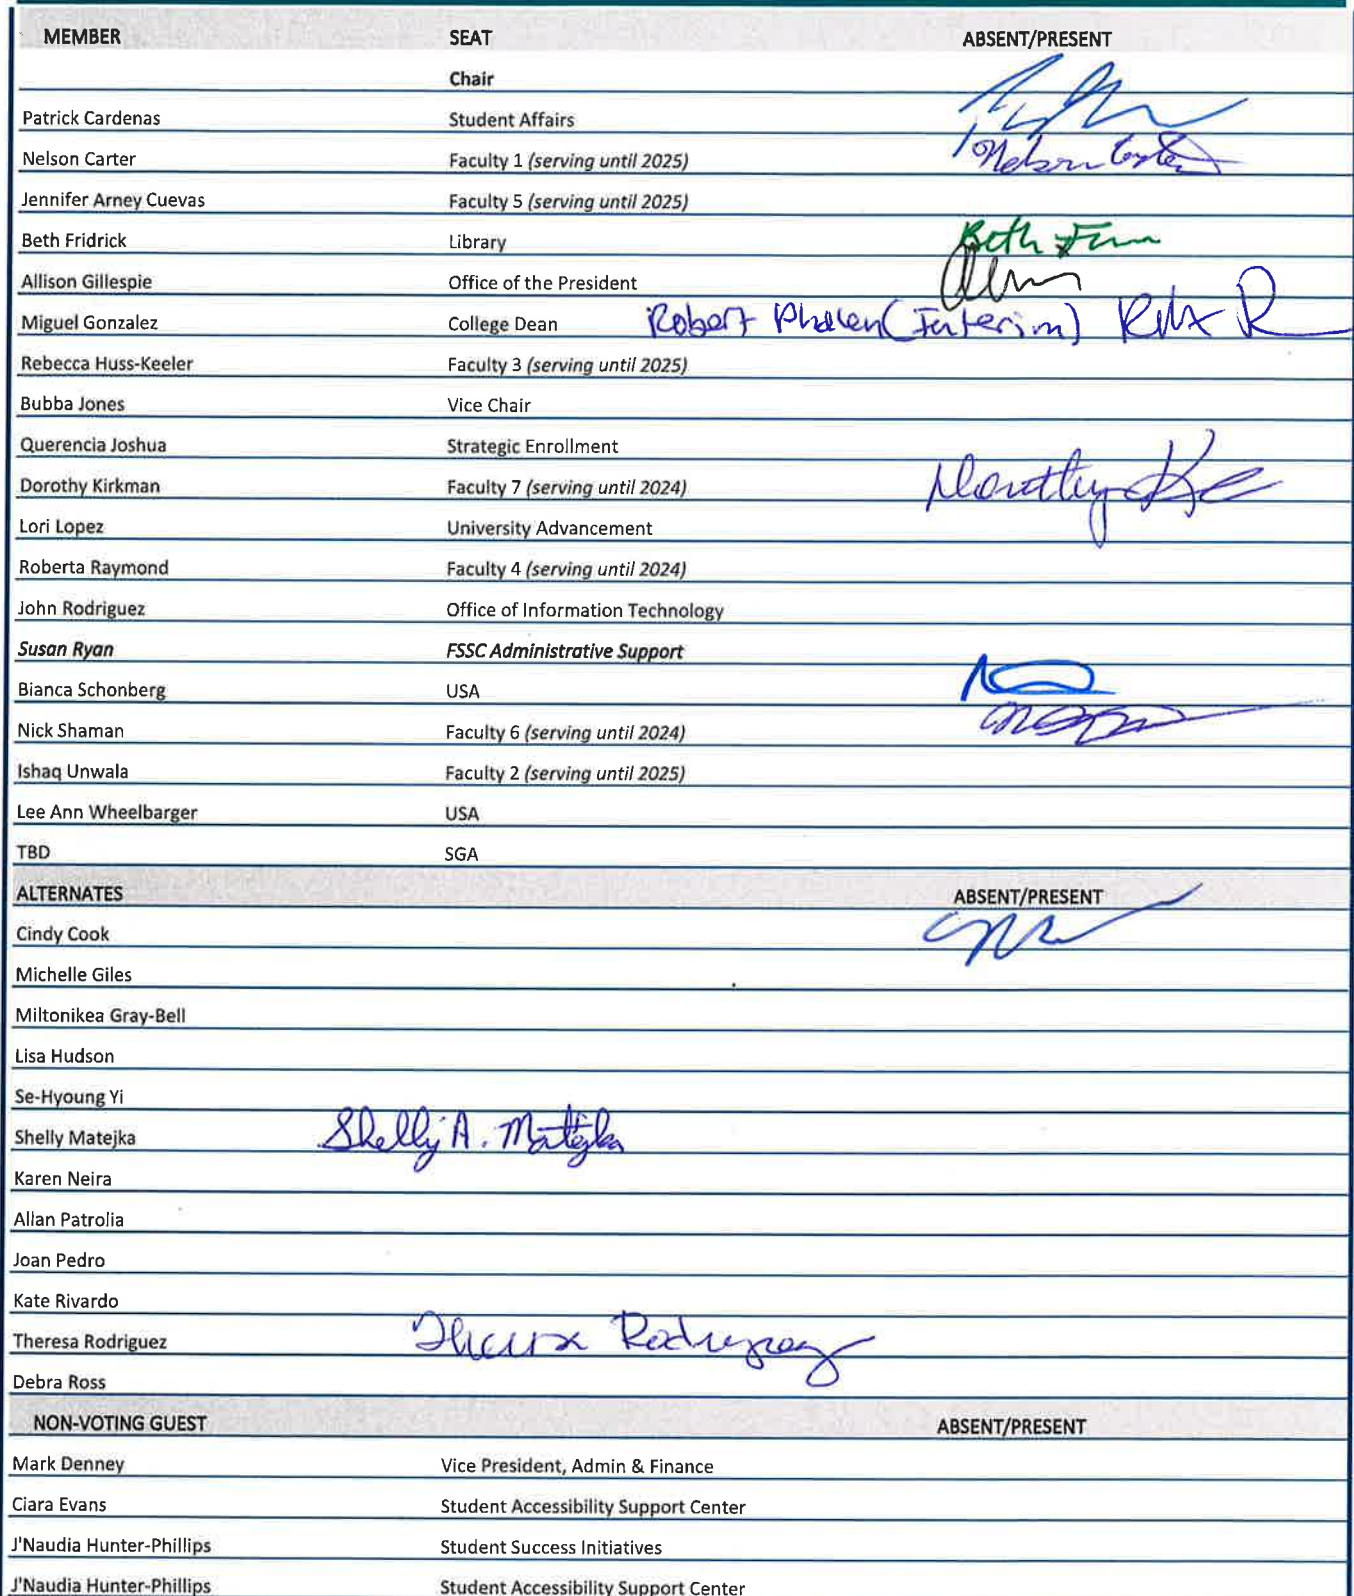 MEMBER SEAT ABSENT/PRESENT
Chair
Patrick Cardenas Student Affairs
Nelson Carter Faculty 1 (serving until 2025) Nelson Carter
Jennifer Arney Cuevas Faculty 5 (serving until 2025)
Beth Fridrick Library Beth
Allison Gillespie Office of the President
Miguel Gonzalez College Dean Robert Phalen (Interim)
Rebecca Huss-Keeler Faculty 3 (serving until 2025)
Bubba Jones Vice Chair
Querencia Joshua Strategic Enrollment
Dorothy Kirkman Faculty 7 (serving until 2024) Dorothy
Lori Lopez University Advancement
Roberta Raymond Faculty 4 (serving until 2024)
John Rodriguez Office of Information Technology
Susan Ryan FSSC Administrative Support
Bianca Schonberg USA
Nick Shaman Faculty 6 (serving until 2024)
Ishaq Unwala Faculty 2 (serving until 2025)
Lee Ann Wheelbarger USA
TBD SGA
ALTERNATES ABSENT/PRESENT
Cindy Cook
Michelle Giles
Miltonikea Gray-Bell
Lisa Hudson
Se-Hyoung Yi
Shelly Matejka Shelly A. Matejka
Karen Neira
Allan Patrolia
Joan Pedro
Kate Rivardo
Theresa Rodriguez Theresa Rodriguez
Debra Ross
NON-VOTING GUEST ABSENT/PRESENT
Mark Denney Vice President, Admin & Finance
Ciara Evans Student Accessibility Support Center
J'Naudia Hunter-Phillips Student Success Initiatives
J'Naudia Hunter-Phillips Student Accessibility Support Center